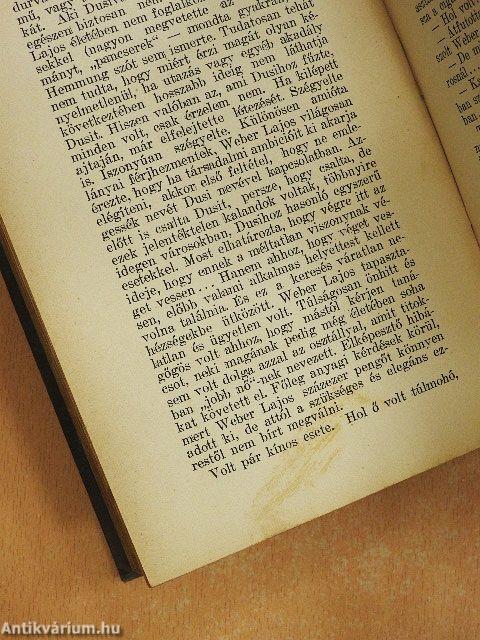 durva
mű, vagy
kát. Aki Dusiva
egészen biztosan nem
Lajos életében nem foglalko
sekkel (nagyon megvetette az
mányt, „pancserek" — mondta gyakran
Hemmung szót sem ismerte. Tudatosan tehát
nem tudta, hogy miért érzi magát olyan ké-
nyelmetlenül, ha utazás vagy egyéb akadály
következtében hosszabb ideig nem láthatja
Dusit. Hiszen valóban az, ami Dusihoz fűzte,
minden volt, csak érzelem nem. Ha kilépett
ajtaján, már elfelejtette létezését. Szégyelte
is. Iszonyúan szégyelte. Különösen amióta
lányai férjhezmentek, Weber Lajos világosan
érezte, hogy ha társadalmi ambicióit ki akarja
elégíteni, akkor első feltétel, hogy ne emle-
gessék nevét Dusi nevével kapcsolatban. Az-
előtt is csalta Dusit, persze, hogy csalta, de
ezek jelentéktelen kalandok voltak, többnyire
idegen városokban, Dusihoz hasonló egyszerű
esetekkel. Most elhatározta, hogy végre itt az
ideje, hogy ennek a méltatlan viszonynak vé-
get vessen... Hanem ahhoz, hogy véget ves-
sen, előbb valami alkalmas helyettest kellett
volna találnia. És ez a keresés váratlan ne-
hézségekbe ütközött. Weber Lajos tapaszta-
latlan és ügyetlen volt. Túlságosan önhitt és
gőgös volt ahhoz, hogy mástól kérjen taná-
csot, neki magának pedig még életében soha
sem volt dolga azzal az osztállyal, amit titok-
ban „jobb nő"-nek nevezett. Elképesztő hibá-
kat követett el. Főleg anyagi kérdések körül,
mert Weber Lajos százezer pengőt könnyen
adott ki, de attól a szükséges és elegáns ez-
restől nem bírt megválni.
Volt pár kínos esete. Hol ő volt túlmohó,
asztal
sza a
— Hol von
— Áffutotte
szólt Weber
— De m
rosnál...
— Ka
ban sz
ban
Antikvárium.hu